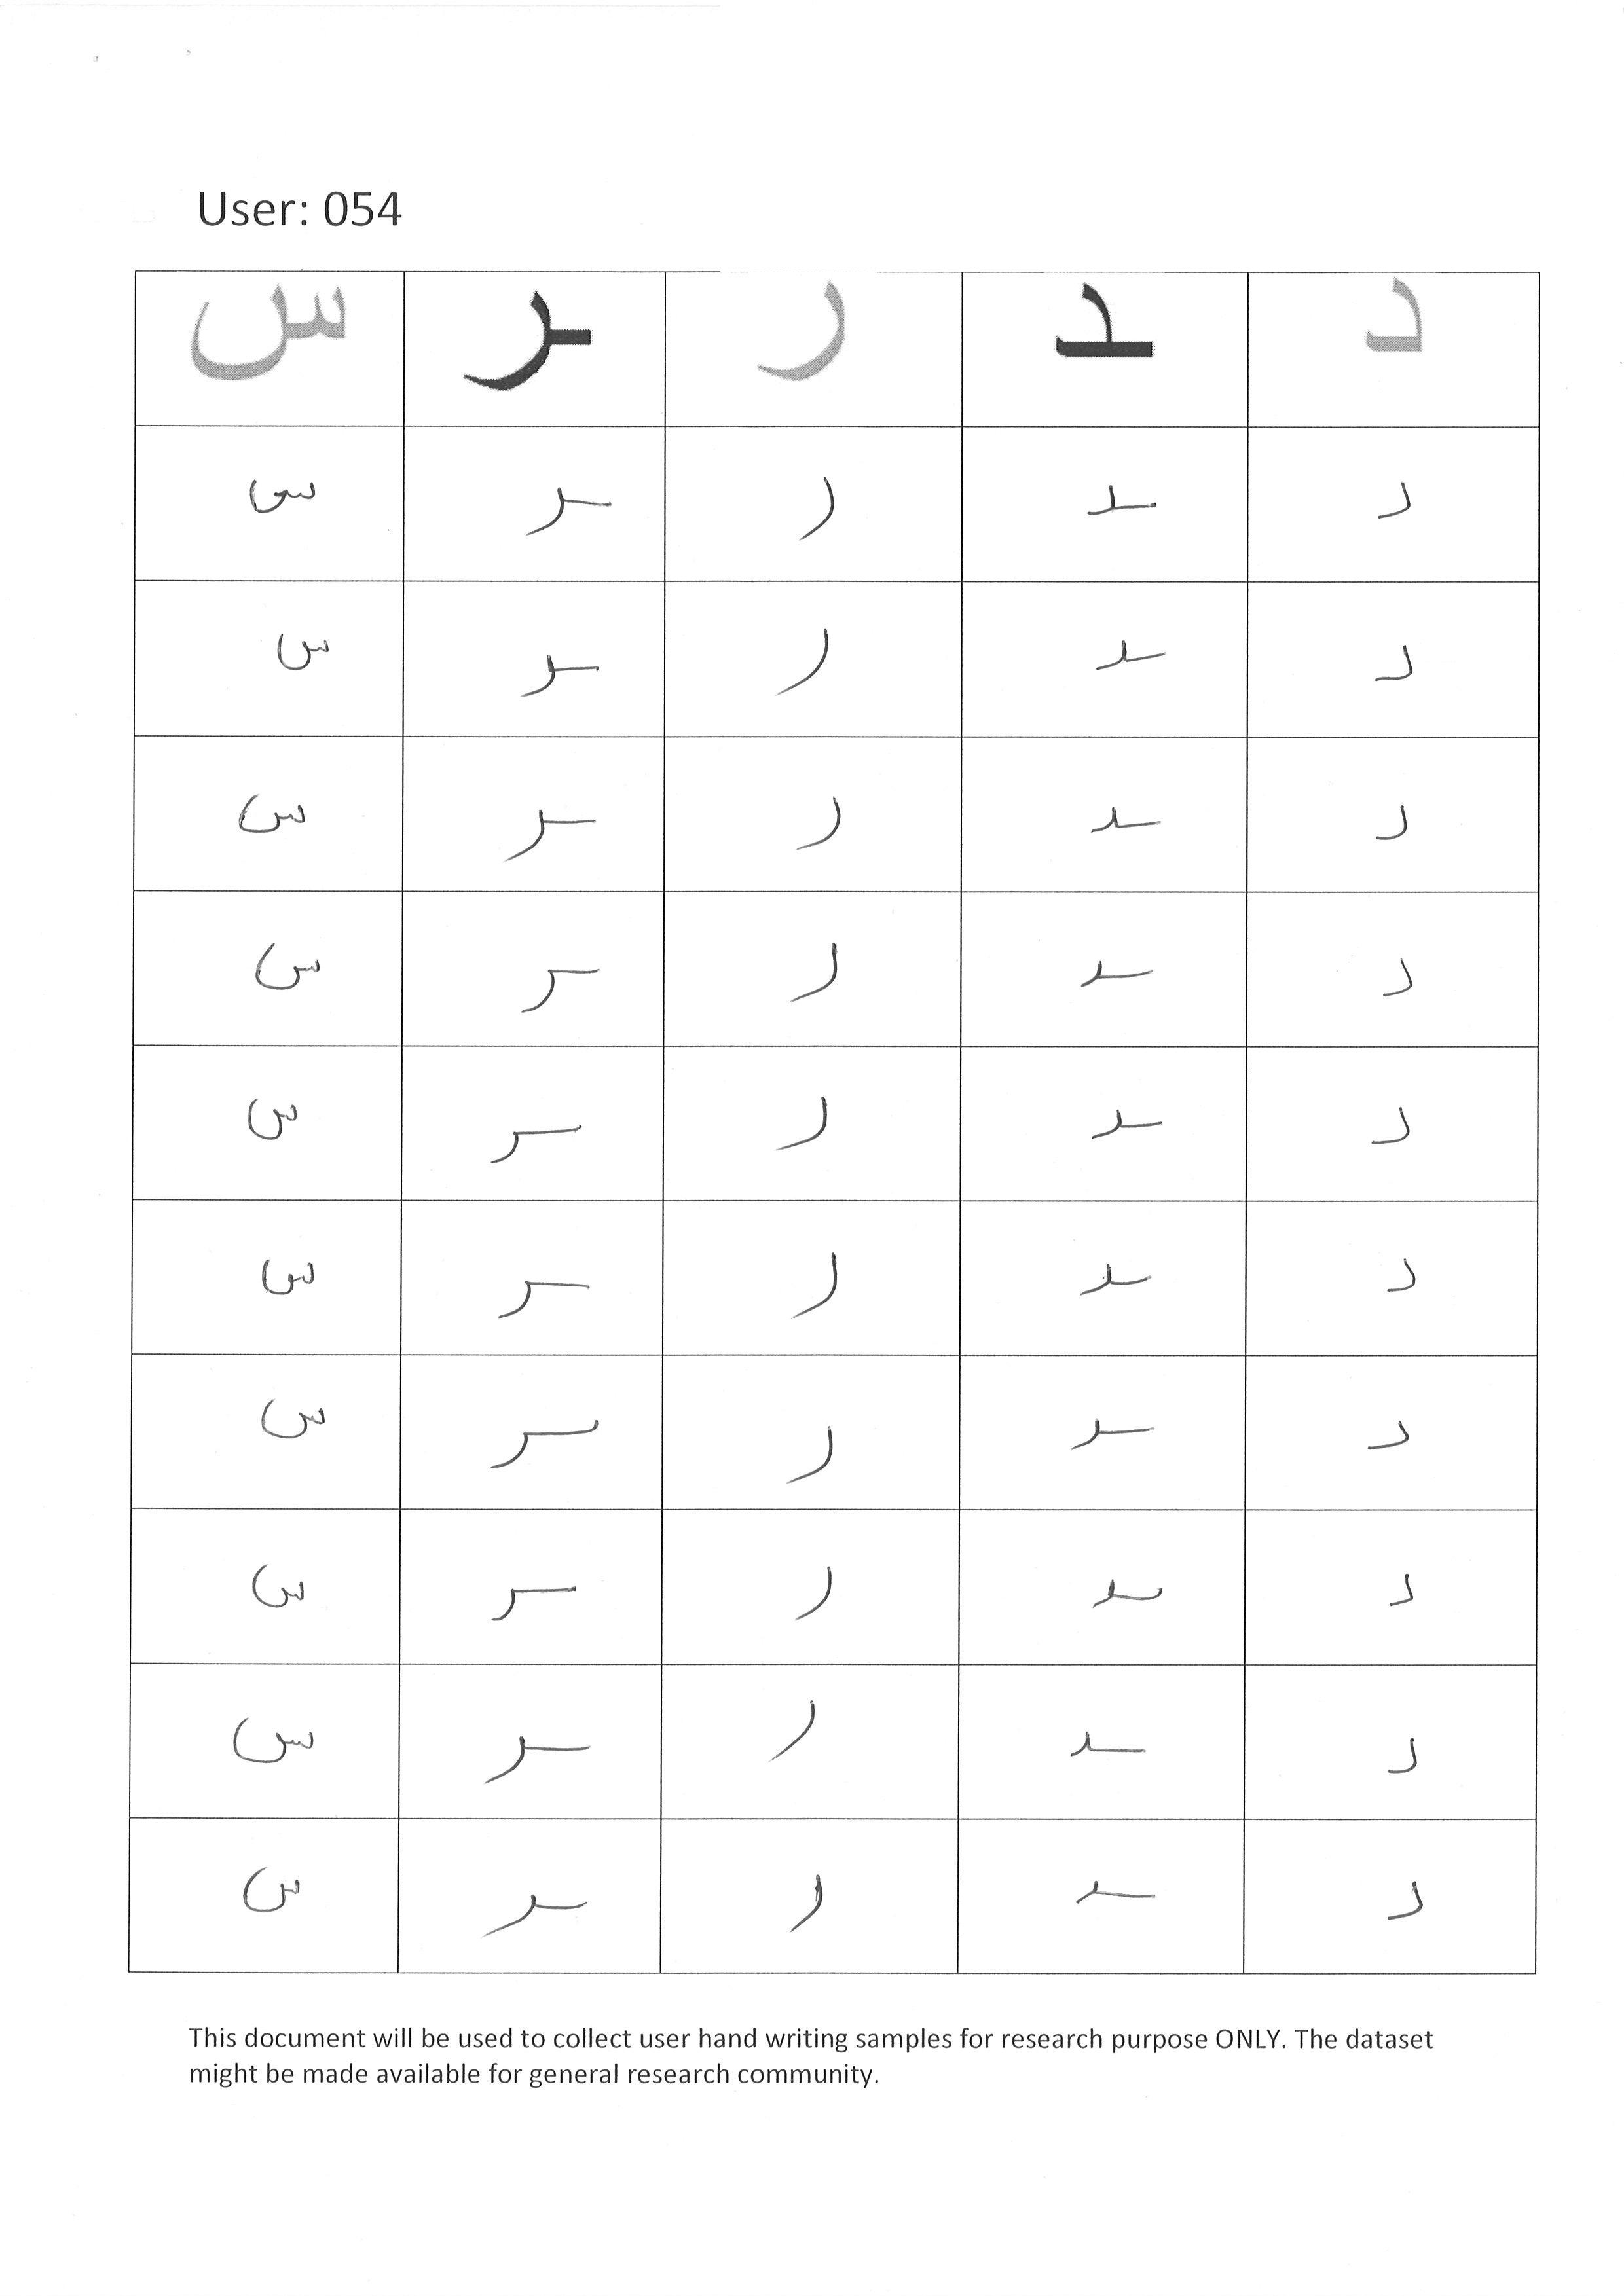 User: 054
س ـر ر ـد د
س ـر ر ـد د
س ـر ر ـد د
س ـر ر ـد د
س ـر ر ـد د
س ـر ر ـد د
س ـر ر ـد د
س ـر ر ـد د
س ـر ر ـد د
س ـر ر ـد د
س ـر ر ـد د
This document will be used to collect user hand writing samples for research purpose ONLY. The dataset
might be made available for general research community.